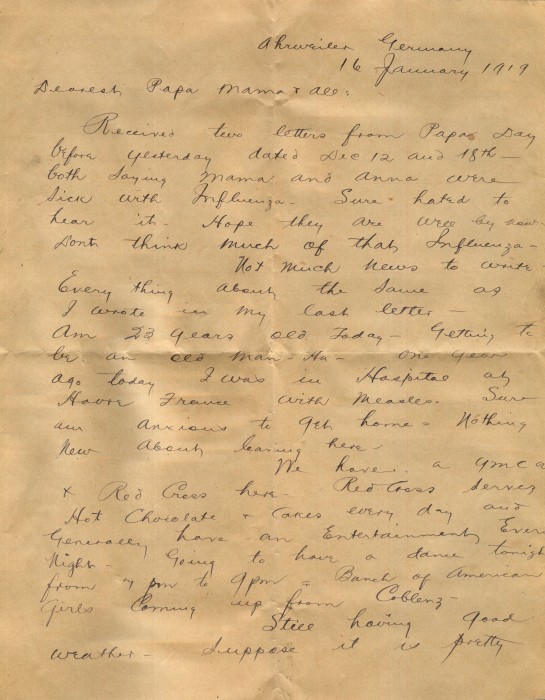 Ahrweiler Germany
16 January 1919
Dearest Papa Mama & All:
Received two letters from Papa Day
before yesterday dated Dec 12 and 18th –
both saying Mama and Anna were
sick with Influenza – Sure hated to
hear it – Hope they are well by now –
Dont think much of that Influenza –
Not much news to write –
Every thing about the same as
I wrote in my last letter –
Am 23 years old Today – Getting to
be an old man – Ha – One year
ago today I was in Hospital at
Havre France with Measles. Sure
am anxious to get home – Nothing
new about leaving here –
We have a YMCA
& Red Cross here – Red Cross serves
Hot Chocolate & Cakes every day and
Generally have an Entertainment Every
Night – Going to have a dance tonight
from 7 pm to 9 pm – Bunch of American
Girls coming up from Coblenz –
Still having good
weather – Suppose it is pretty